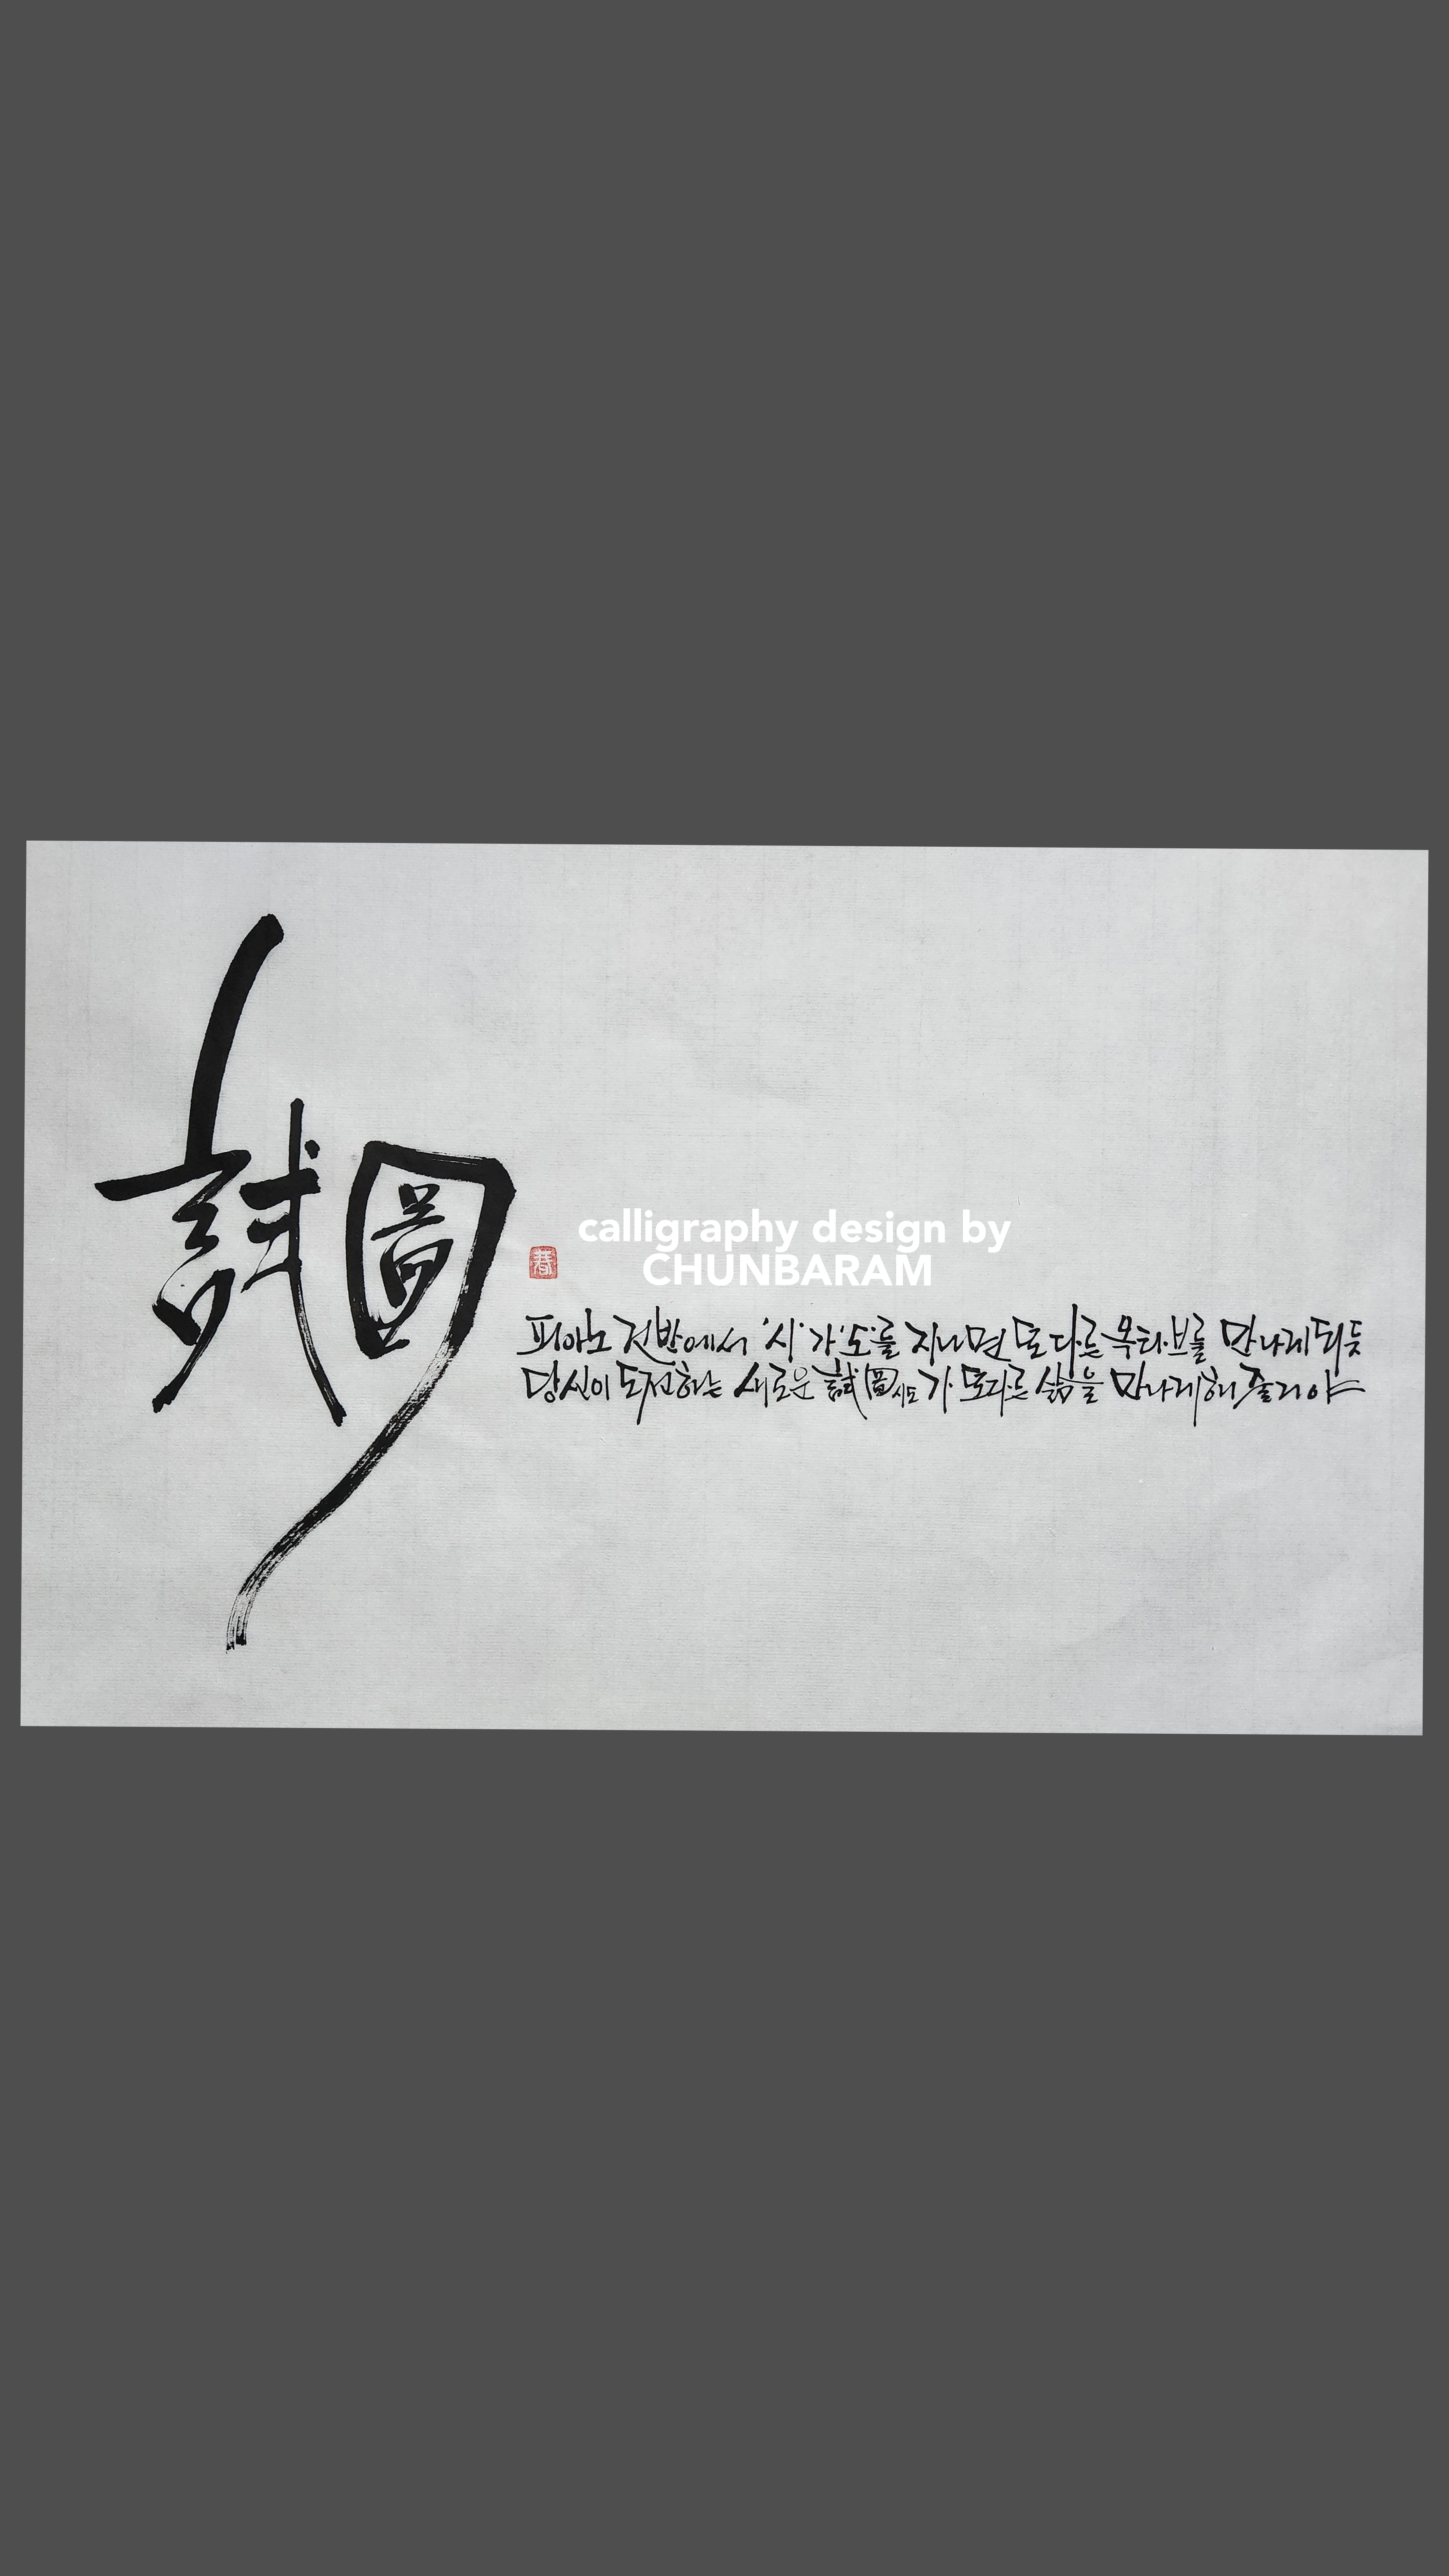 試圖
calligraphy design by
CHUNBARAM
春
피아노 건반에서 '시'가 '도'를 지나면 또 다른 옥타브를 만나게 되듯
당신이 도전하는 새로운 試圖시도가 또다른 삶을 만나게 해 줄거야